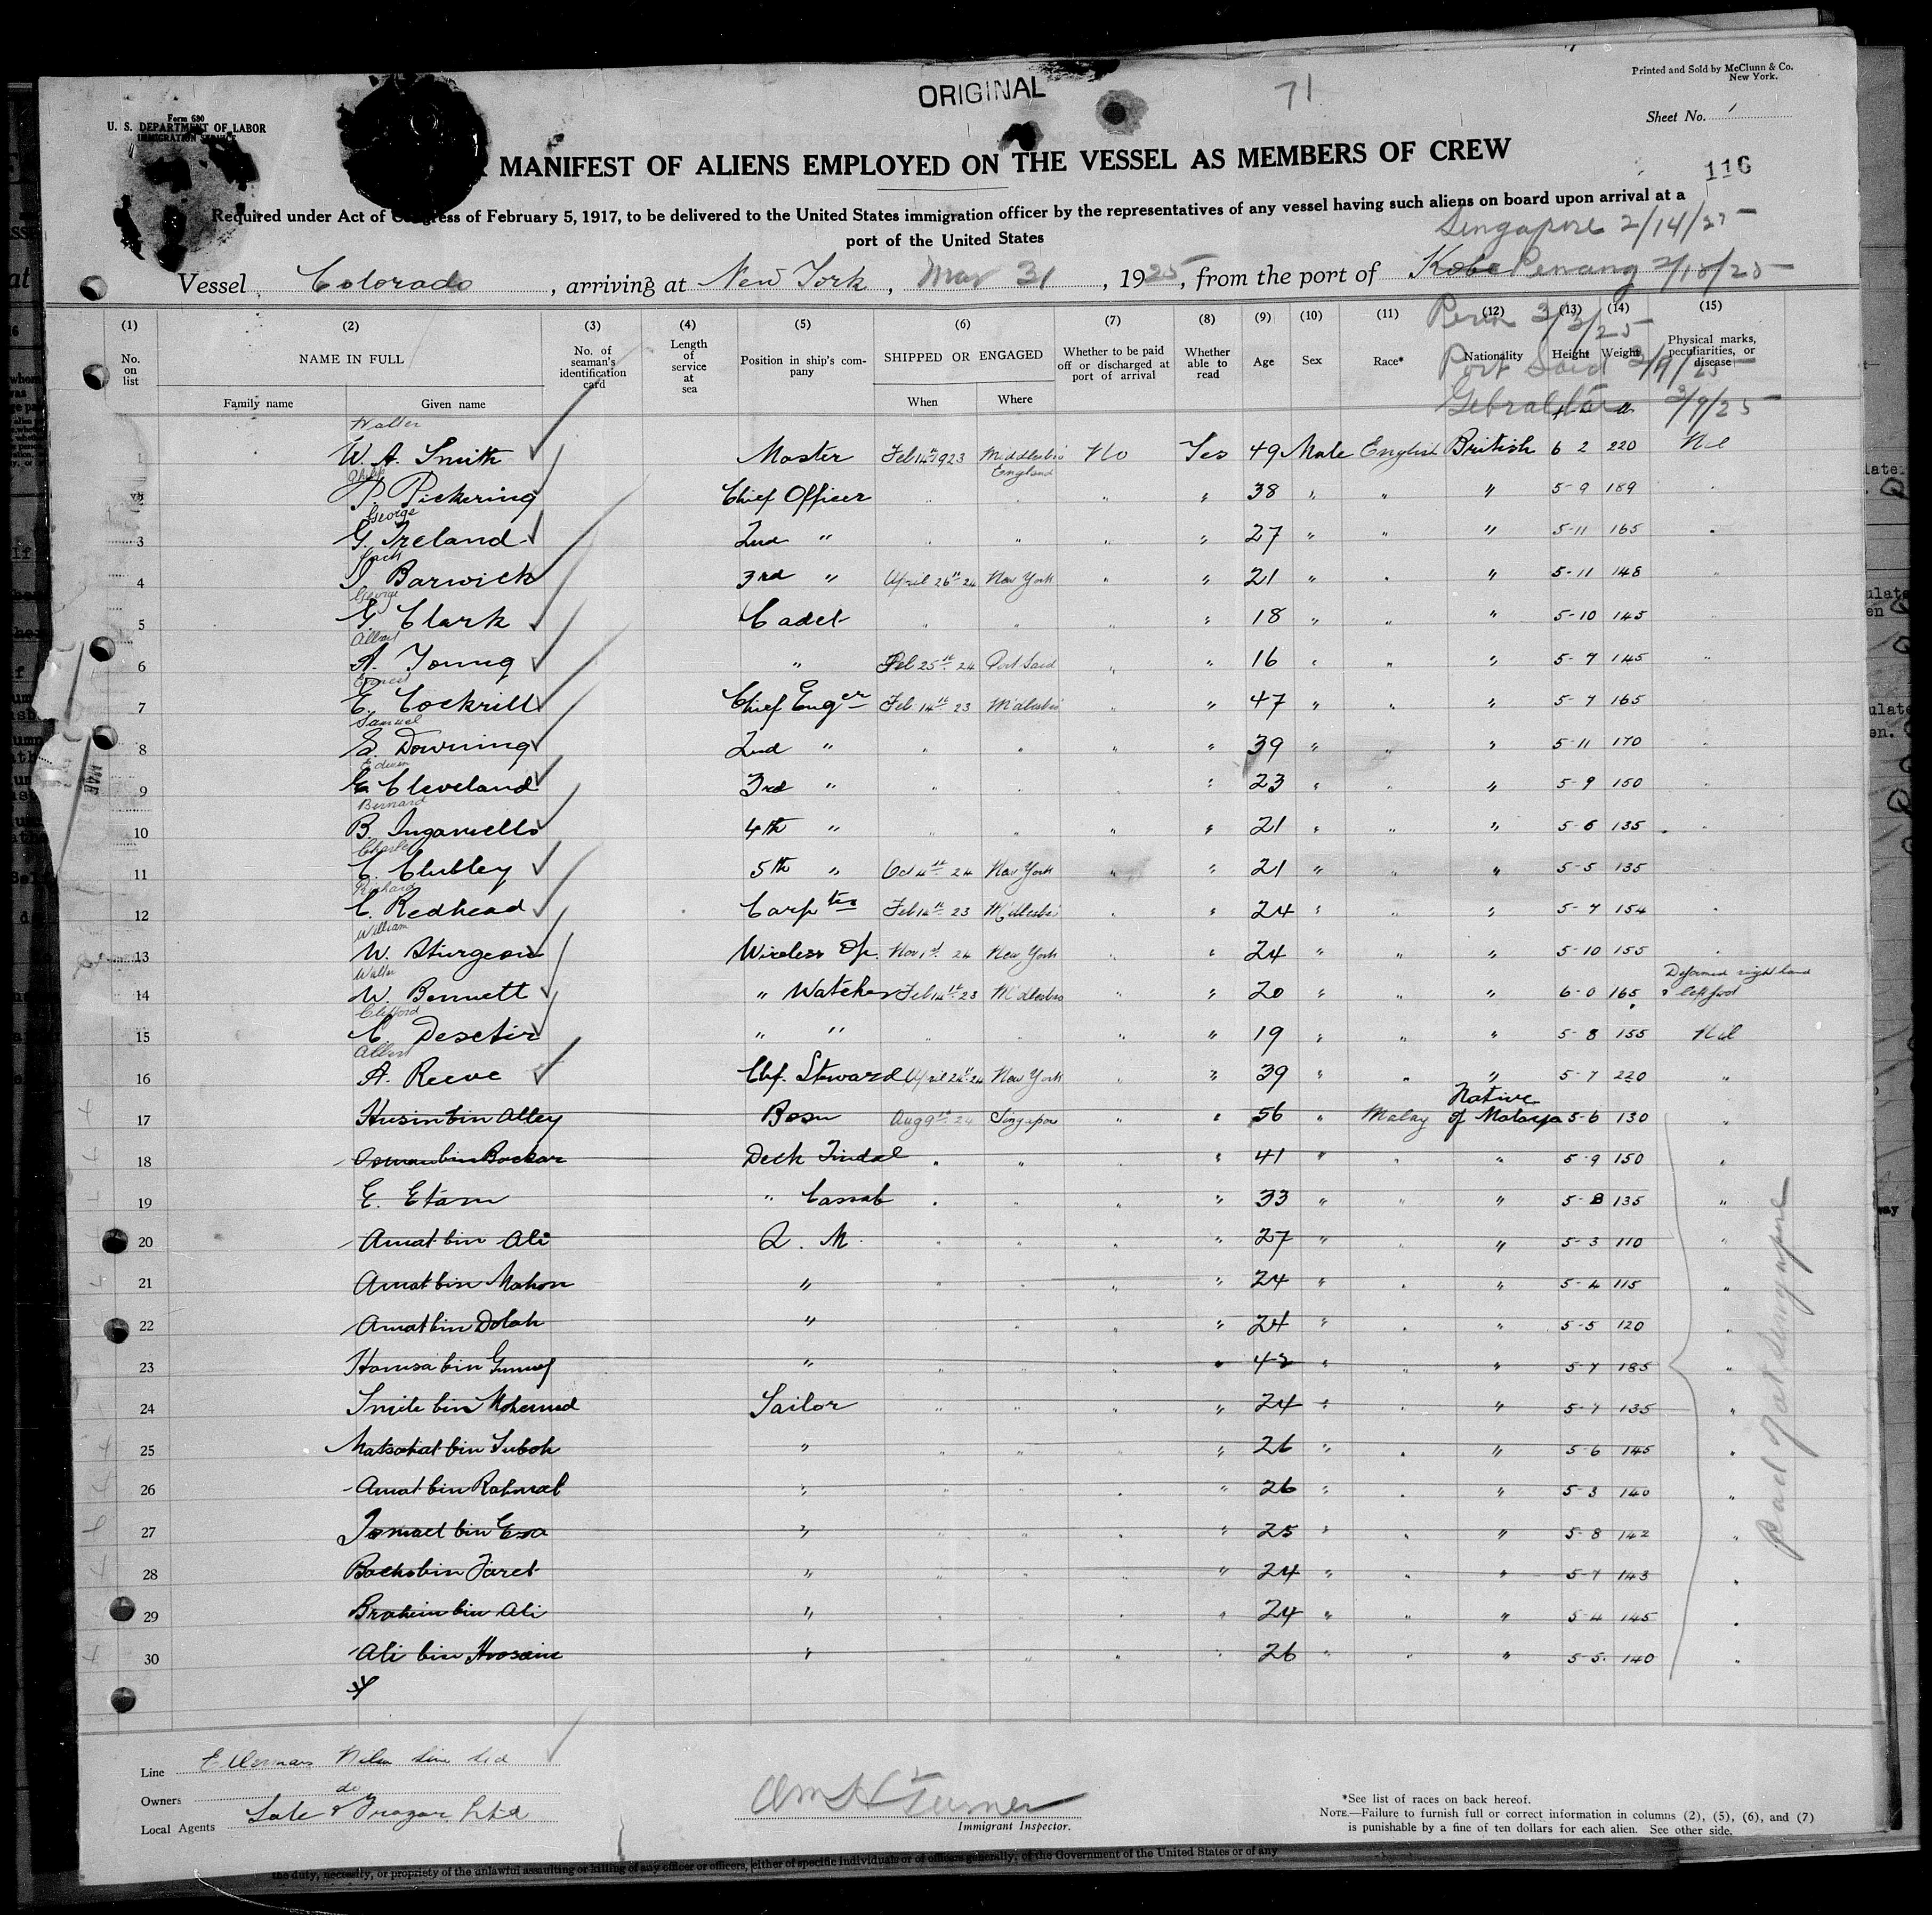 ORIGINAL
71
Printed and Sold by McClunn & Co.
New York.
Form 680
U. S. DEPARTMENT OF LABOR
IMMIGRATION SERVICE
Sheet No. 1
MANIFEST OF ALIENS EMPLOYED ON THE VESSEL AS MEMBERS OF CREW
116
Required under Act of Congress of February 5, 1917, to be delivered to the United States immigration officer by the representatives of any vessel having such aliens on board upon arrival at a
port of the United States
Singapore 2/14/25
Vessel Colorado, arriving at New York, Mar 31, 1925, from the port of Kobe Penang 2/18/25
Perim 3/3/25
Port Said 3/9/25
Gebraltar 3/9/25
(1) (2) (3) (4) (5) (6) (7) (8) (9) (10) (11) (12) (13) (14) (15)
No. on list NAME IN FULL No. of seaman's identification card Length of service at sea Position in ship's company SHIPPED OR ENGAGED Whether to be paid off or discharged at port of arrival Whether able to read Age Sex Race* Nationality Height Weight Physical marks, peculiarities, or disease
Family name Given name When Where
Walter
1 W. A. Smith Master Feb 14th 1923 Middlesbro England No Yes 49 Male English British 6 2 220 Nil
2 P. Pickering Chief Officer " " " " 38 " " " 5-9 189 "
George
3 G. Ireland 2nd " " " " " 27 " " " 5-11 165 "
Jack
4 J. Barwick 3rd " April 26th 24 New York " " 21 " " " 5-11 148 "
George
5 G. Clark Cadet " " " " 18 " " " 5-10 145 "
Albert
6 A. Young " Feb 25th 24 Port Said " " 16 " " " 5-7 145 "
Ernest
7 E. Cockrill Chief Enger Feb 14th 23 M'dlesbro " " 47 " " " 5-7 165 "
Samuel
8 S. Downing 2nd " " " " " 39 " " " 5-11 170 "
Edwin
9 E. Cleveland 3rd " " " " " 23 " " " 5-9 150 "
Bernard
10 B. Ingamells 4th " " " " " 21 " " " 5-6 135 "
Charles
11 C. Clubley 5th " Oct 4th 24 New York " " 21 " " " 5-5 135
Richard
12 C. Redhead Carpter Feb 14th 23 M'dlesbro " " 24 " " " 5-7 154 "
William
13 W. Sturgeon Wireless Op. Nov 1st 24 New York " " 24 " " " 5-10 155 "
Walter
14 W. Bennett " Watcher Feb 14th 23 M'dlesbro " " 20 " " " 6-0 165 Deformed right hand & left foot
Clifford
15 C. Desetir " " " " " " 19 " " " 5-8 155 Nil
Albert
16 A. Reeve Chf. Steward April 24th 24 New York " " 39 " " " 5-7 220 "
17 Husin bin Alley Bosn Aug 9th 24 Singapore " " 56 " Malay Native of Malaya 5-6 130 "
18 Osman bin Backar Deck Tindal " " " " 41 " " " 5-9 150 "
19 E. Etam " Cassab " " " " 33 " " " 5-8 135 "
20 Amat bin Ali Q. M. " " " " 27 " " " 5-3 110 "
21 Amat bin Mahon " " " " " 24 " " " 5-4 115 "
22 Amat bin Dolah " " " " " 24 " " " 5-5 120 "
23 Hamsa bin " " " " " 42 " " " 5-7 185 "
24 Smile bin Mohamed Sailor " " " " 24 " " " 5-7 135 "
25 Matsahat bin Tuboh " " " " " 26 " " " 5-6 145 "
26 Amat bin Rahmat " " " " " 26 " " " 5-3 140 "
27 Ismael bin Esa " " " " " 25 " " " 5-8 142 "
28 Bachobin Jaret " " " " " 24 " " " 5-7 143 "
29 Brahim bin Ali " " " " " 24 " " " 5-4 145 "
30 Ali bin Hosain " " " " " 26 " " " 5-5 140 "
Paid off at Singapore
Line Ellermans Wilson Line Ltd
Owners do
Local Agents Sale & Frazar Ltd
Turner
Immigrant Inspector.
*See list of races on back hereof.
NOTE.—Failure to furnish full or correct information in columns (2), (5), (6), and (7)
is punishable by a fine of ten dollars for each alien. See other side.
the duty, necessity, or propriety of the unlawful assaulting or killing of any officer or officers, either of specific individuals or of officers generally, of the Government of the United States or of any